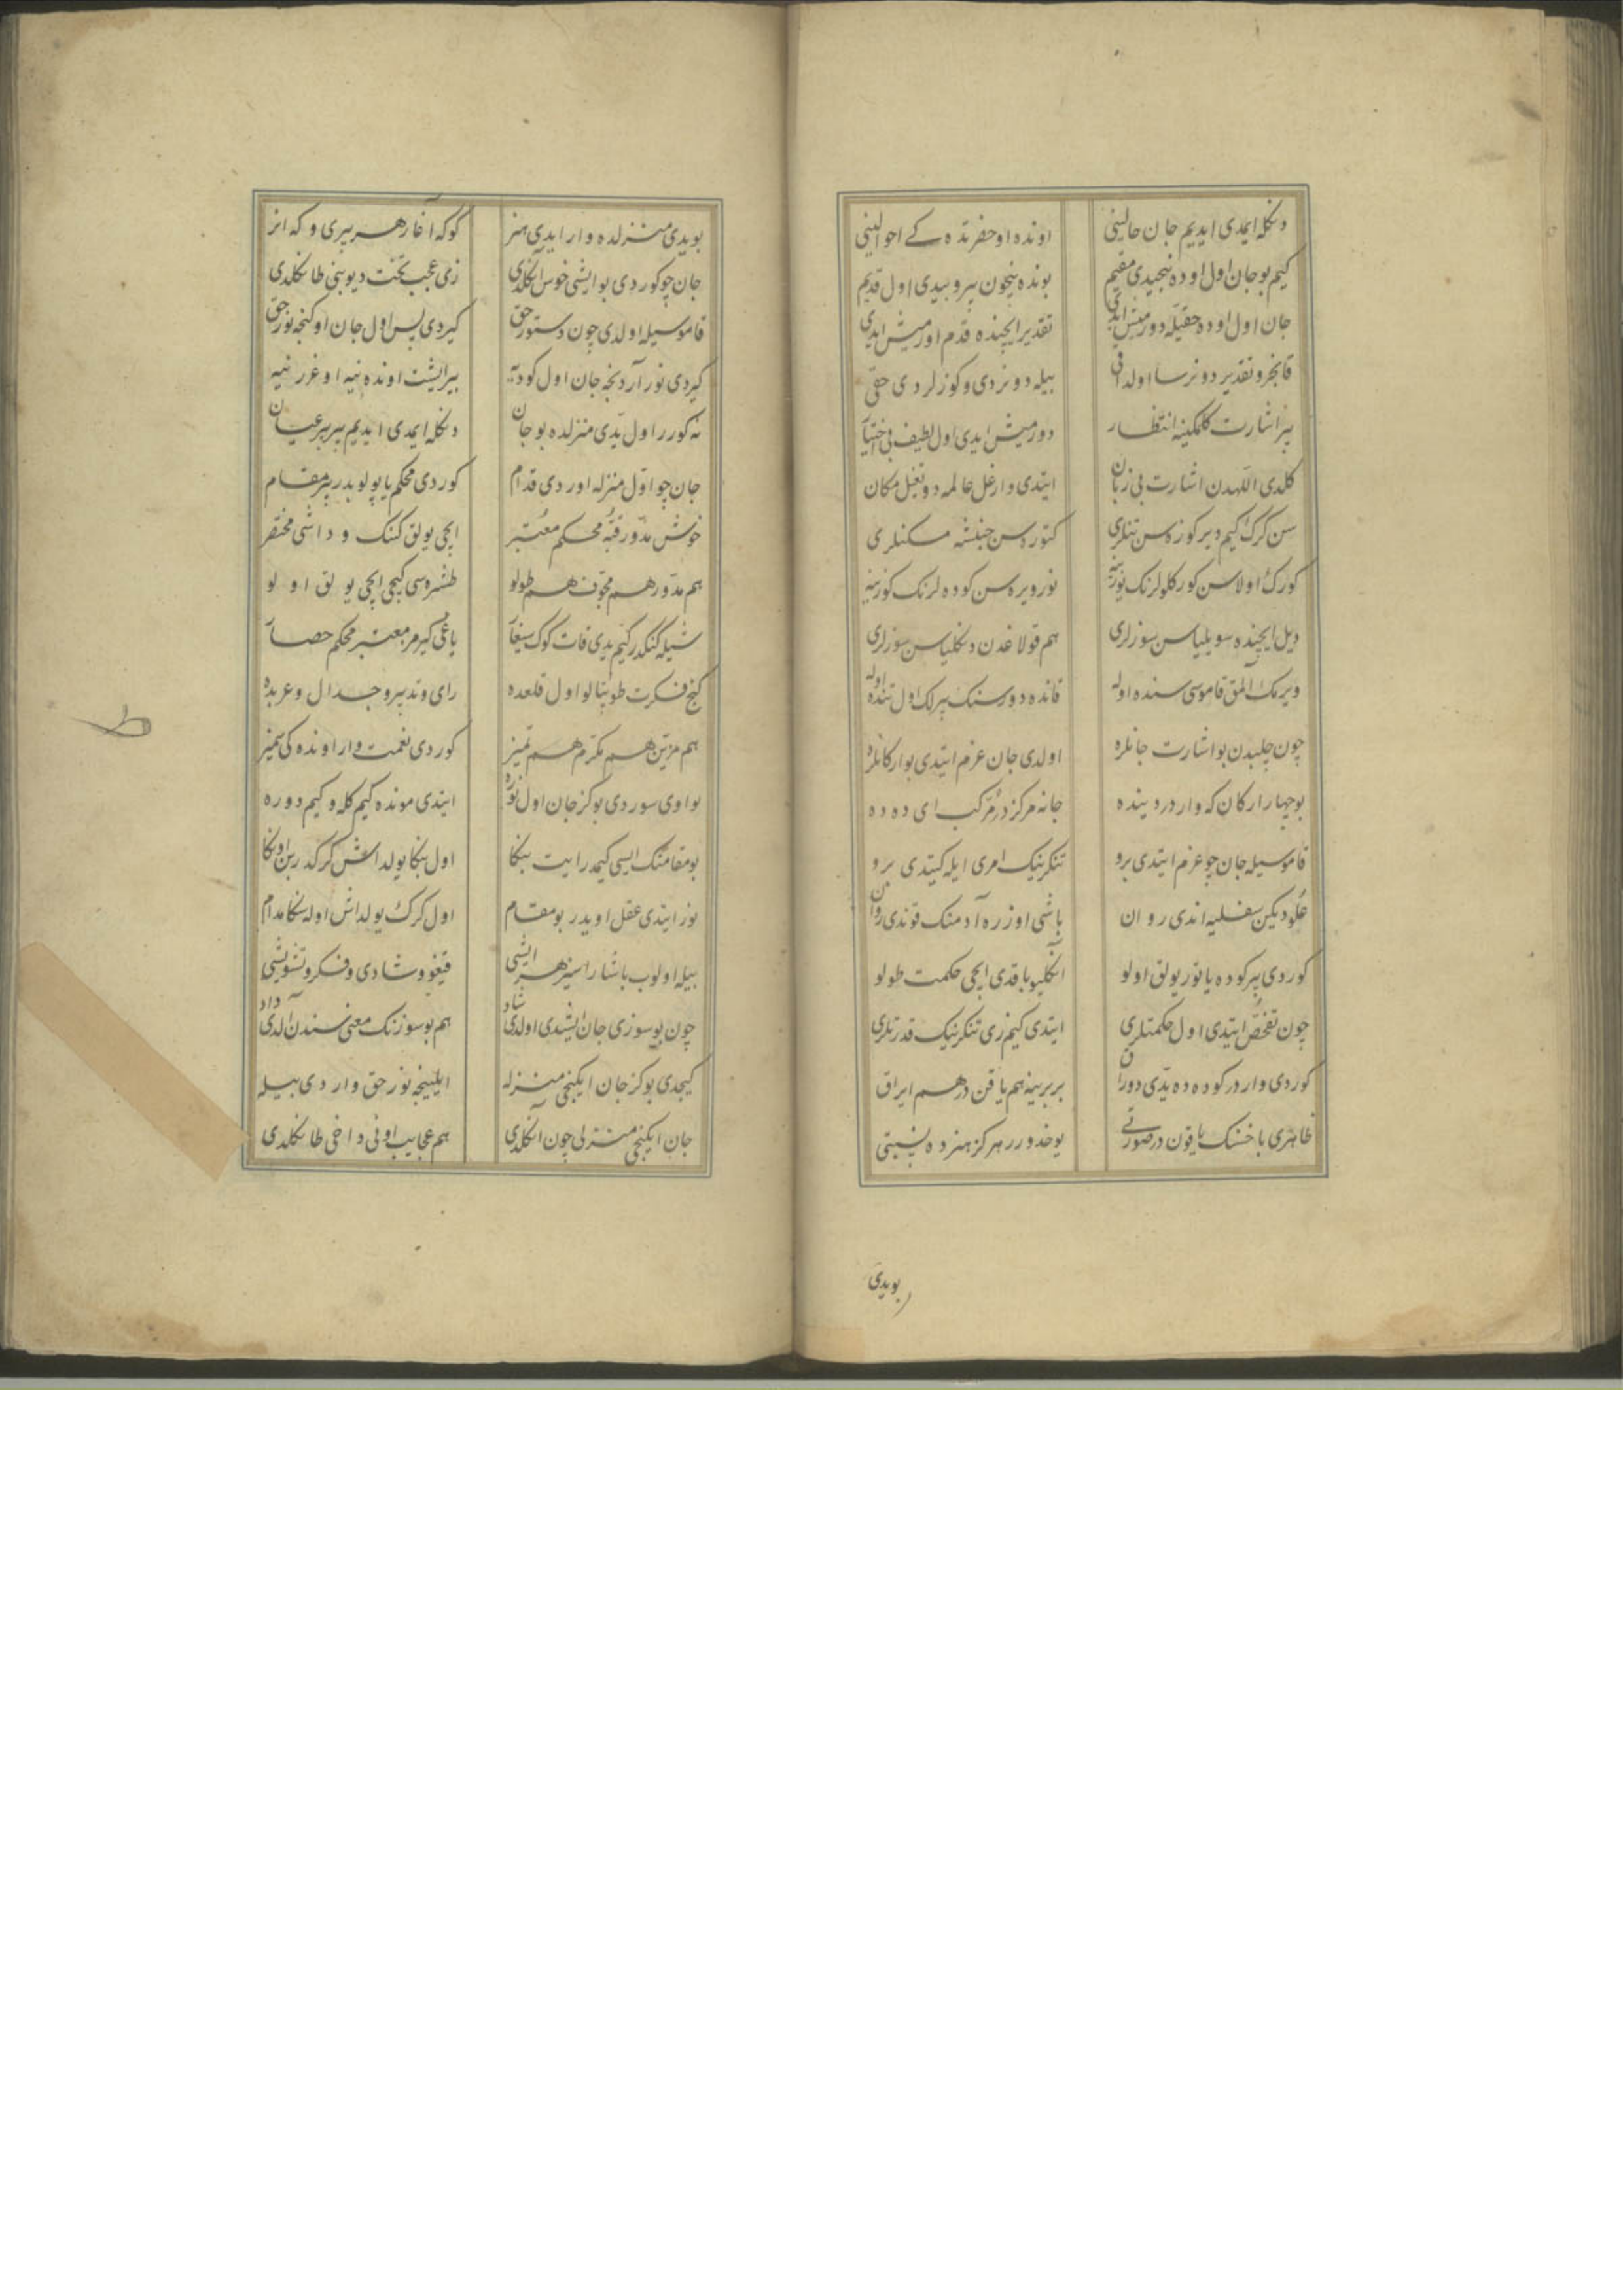 دنکله ایمدی ایدیم جان حالینی اونده او حضرتده کے احوالینی
کیم بو جان اول اوده نیجیدی مقیم بونده نیچون بیرو بیدی اول قدیم
جان اول اوده حقیله دورمیش ایدی تقدیر ایچنده قدم اورمیش ایدی
قانجرو تقدیر دونرسا اولداقی بیله دونردی و کوزلردی حقی
بیر اشارت کلمکینه انتظار دورمیش ایدی اول لطیف بی اختیار
کلدی اللهدن اشارت بی زبان ایتدی وارغل عالمه دوتغل مکان
سن کرک کیم دیرکوزه سن تنلری کتوره سن جنبشه مسکنلری
کورک اولاسن کورکلولرنک یوزینه نور ویره سن کوده لرنک کوزینه
دیل ایچنده سویلیاسن سوزلری هم قولاغدن دنکلیاسن سوزلری
ویرمک المق قاموسی سنده اوله قانده دورسنک بیرلک اول تنده اوله
چون چلبدن بو اشارت جانلره اولدی جان عزم ایتدی بو ارکانلره
بو چهار ارکان که واردر دینده جانه مرکزدر مرکب ای دده
قاموسیله جان چو عزم ایتدی برو تنکرینیک امری ایله کیتدی برو
علودیکن سفلیه اندی روان باشی اوزره آدمنک قوندی روان
کوردی بیر کوده یاتور یولق اولو انکلیو باقدی ایچی حکمت طولو
چون تفحص ایتدی اول حکمتلری ایتدی کیم زی تنکرینیک قدرتلری
کوردی واردر کوده ده یدی دوراق بربرینه هم یاقن در هم ایراق
ظاهری باخسنک یاقون در صورتی یوخدورر هرکز هنرده نسبتی
بویدی
بویدی منزلده وار ایدی هنر کوکه آغار هر بیری و که انر
جان چو کوردی بو ایشی خوش آنکلدی زی عجب تخت دیوبنی طانکلدی
قاموسیله اولدی چون دستور حق کیردی پس اول جان اوکنجه نور حق
کیردی نور آردنجه جان اول کودیه بیر ایشت اونده نیه اوغرر نیه
نه کورر اول یدی منزلده بو جان دنکله ایمدی ایدیم بیر بیر عیان
جان چو اول منزله اوردی قدام کوردی محکم یاپولوبدر بیر مقام
خوش مدور قبه محکم معتبر ایچی یولق کنک و داشی مختصر
هم مدور هم مجوف هم طولو طشره سی کیچی ایچی یولق اولو
شیله کنکدر کیم یدی قات کوک سیغار یاغی کیرمز معتبر محکم حصار
کنج فکرت طوپتالو اول قلعده رای و تدبیر و جدال و عربده
هم مزین هم مکرم هم تمیز کوردی نعمت وار اونده کی تمیز
بو اوی سوردی بو کز جان اول نوره ایتدی مونده کیم کله و کیم دوره
بو مقامنک ایسی کیمدر ایت بنکا اول بنکا یولداش کرکدر بن اونکا
نور ایتدی عقل اویدر بو مقام اول کرک یولداش اوله سنکا مدام
بیله اولوب باشاراسیز هر ایشی قیغو و شادی و فکر و تشویشی
چون بو سوزی جان ایشیدی اولدی شاد هم بو سوزنک معنی سندن آلدی داد
کیجدی بو کز جان ایکنجی منزله ایلینجه نور حق واردی بیله
جان ایکنجی منزلی چون آنکلدی هم عجایب اونی داخی طانکلدی
ط